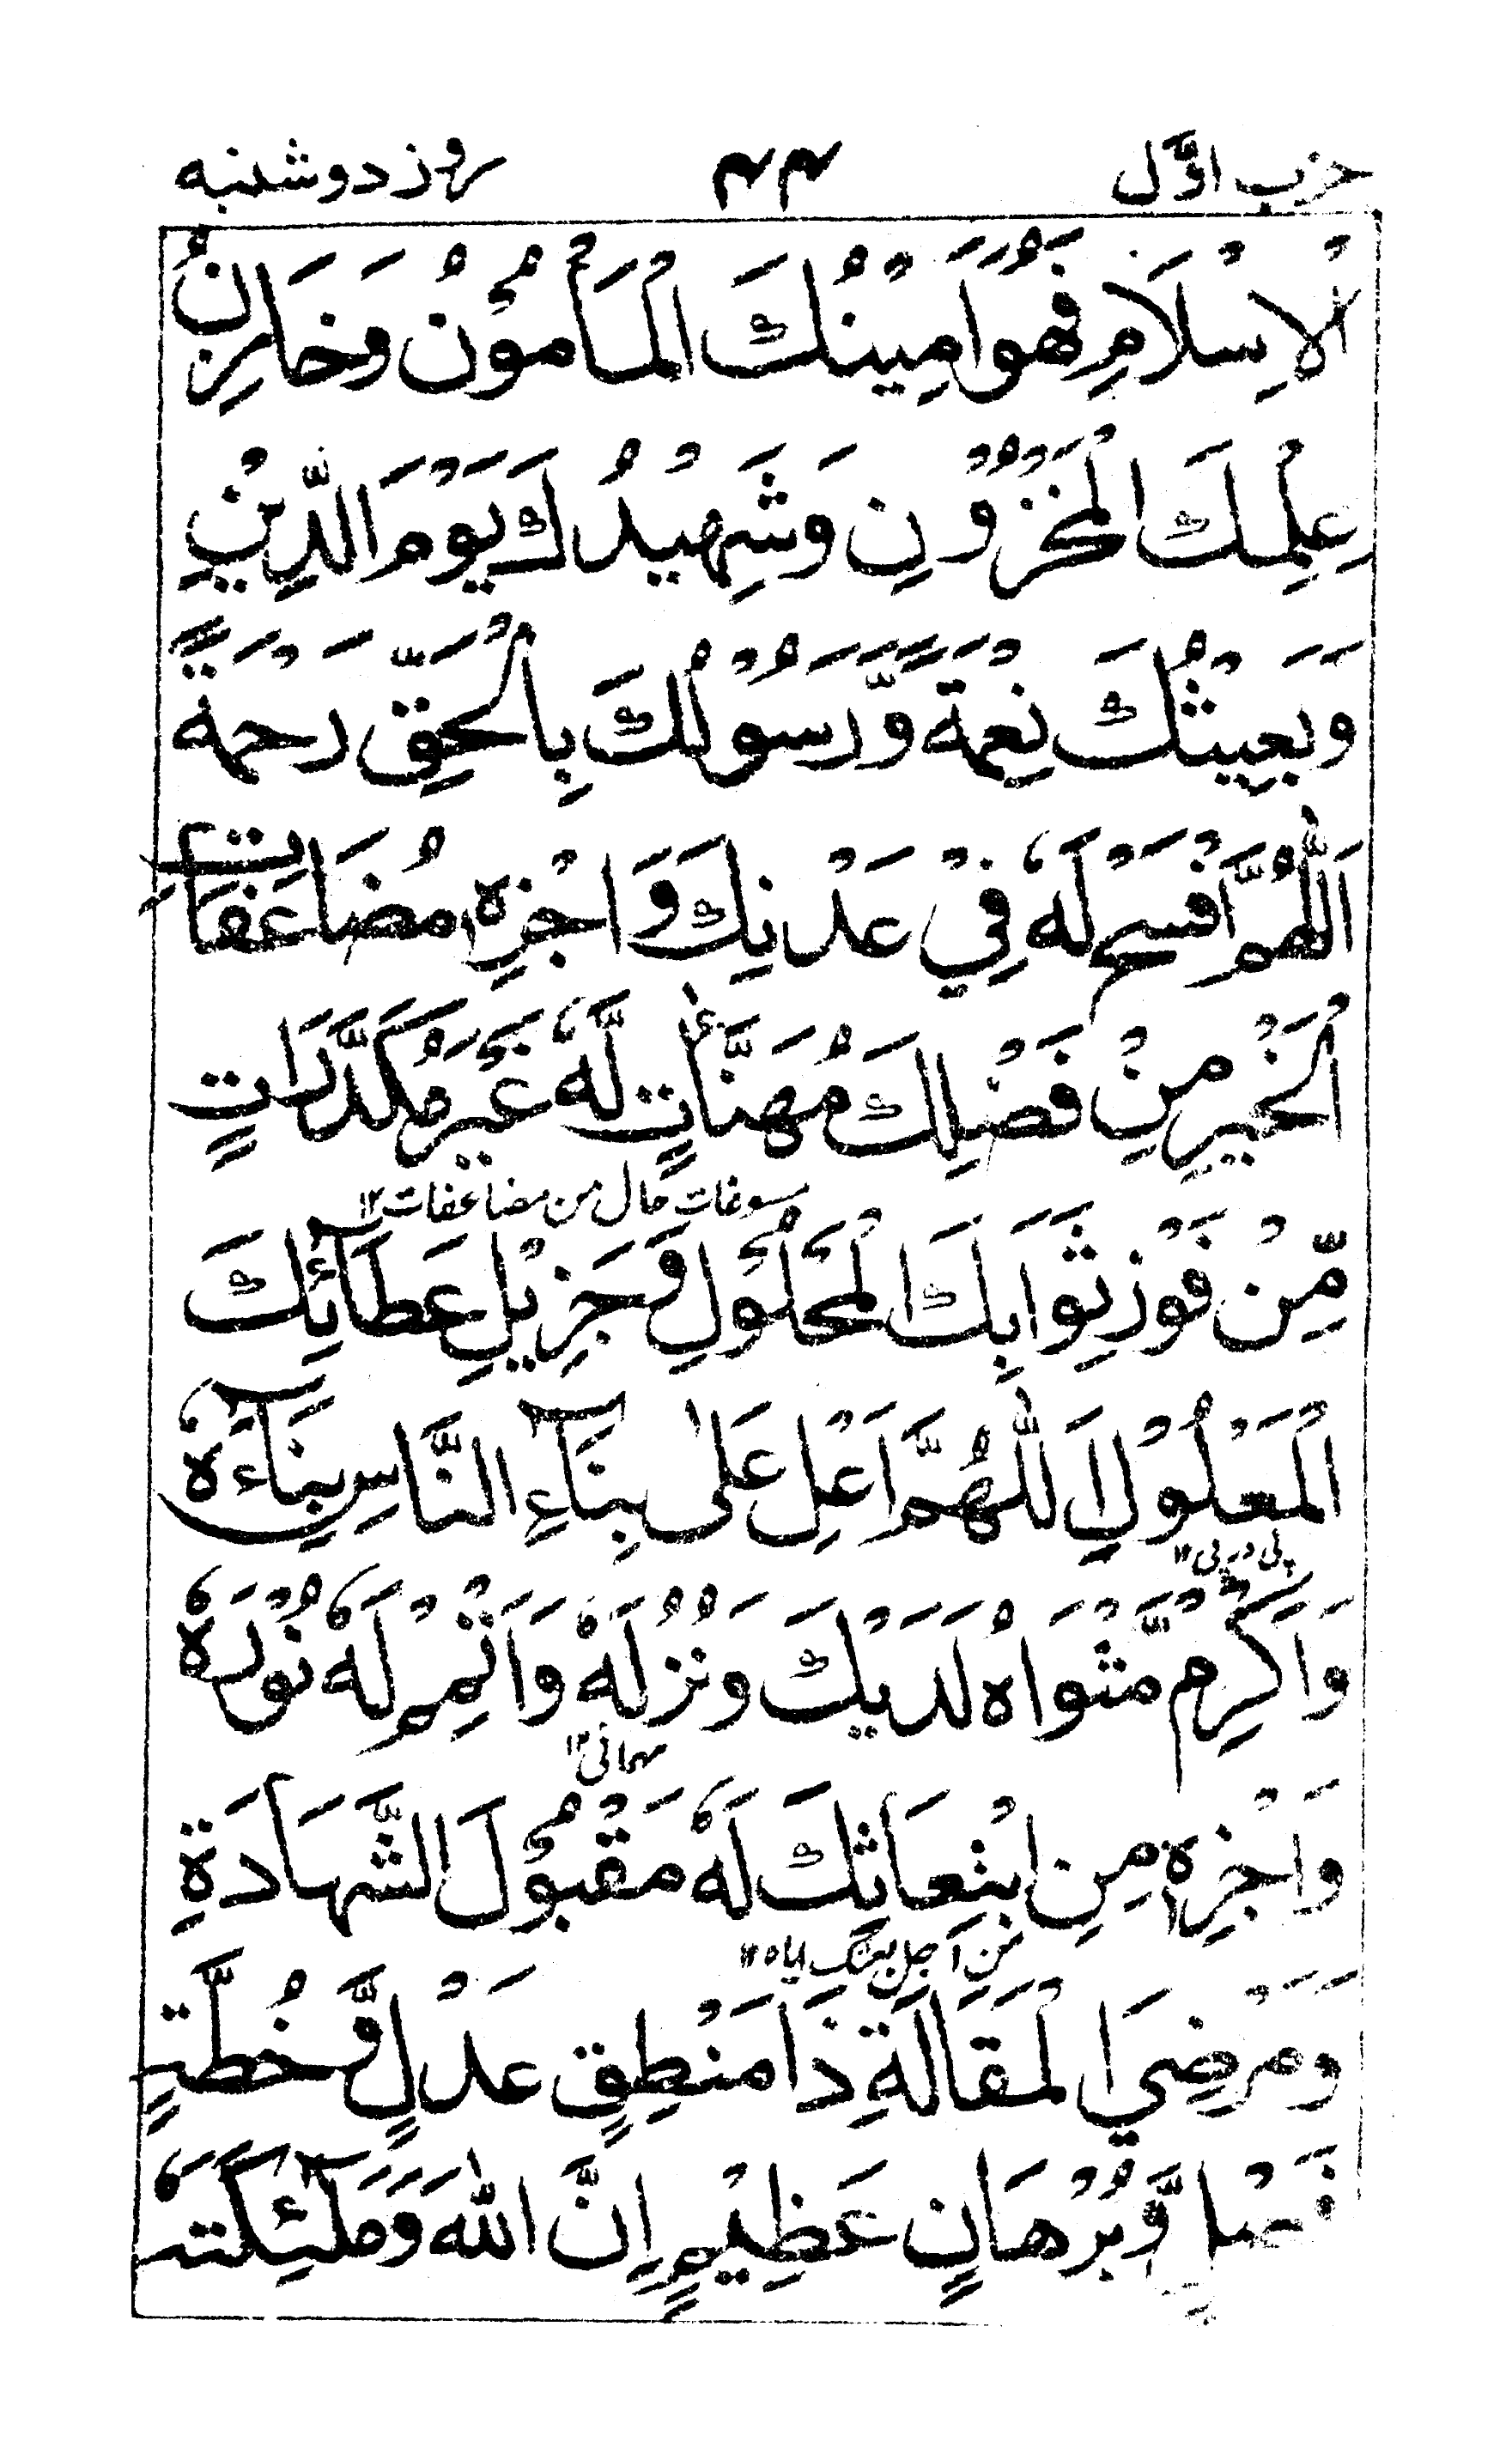 حزب اوّل ۴۴ روز دوشنبه
الْاِسْلَامِ فَهُوَ اَمِيْنُكَ الْمَأْمُوْنُ وَخَازِنُ
عِلْمِكَ الْمَخْزُوْنِ وَشَهِيْدُكَ يَوْمَ الدِّيْنِ
وَبَعِيْثُكَ نِعْمَةً وَّرَسُوْلُكَ بِالْحَقِّ رَحْمَةً
اَللّٰهُمَّ افْسَحْ لَهٗ فِيْ عَدْنِكَ وَاجْزِهٖ مُضَاعَفَاتِ
الْخَيْرِ مِنْ فَضْلِكَ مُهَنَّاٰتٍ لَّهٗ غَيْرَ مُكَدَّرَاتٍ
حال من مضاعفات ۱۲
مِّنْ فَوْزِ ثَوَابِكَ الْمَحْلُوْلِ وَجَزِيْلِ عَطَآئِكَ
الْمَعْلُوْلِ اَللّٰهُمَّ اَعْلِ عَلٰى بِنَآءِ النَّاسِ بِنَآءَهٗ
پی در پی ۱۲
وَاَكْرِمْ مَّثْوَاهُ لَدَيْكَ وَنُزُلَهٗ وَاَتْمِمْ لَهٗ نُوْرَهٗ
مہمانی ۱۲
وَاجْزِهٖ مِنِ ابْتِعَاثِكَ لَهٗ مَقْبُوْلَ الشَّهَادَةِ
من اجل بعثک ایاہ ۱۲
وَمَرْضِيَ الْمَقَالَةِ ذَا مَنْطِقٍ عَدْلٍ وَّخُطَّةٍ
فَصْلٍ وَّبُرْهَانٍ عَظِيْمٍ اِنَّ اللّٰهَ وَمَلٰٓئِكَتَهٗ